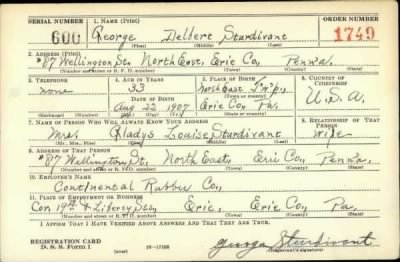 SERIAL NUMBER 1. NAME (Print) ORDER NUMBER
600 George Delbert Sturdivant 1749
(First) (Middle) (Last)
2. ADDRESS (Print)
#87 Wellington St., North East, Erie Co., Penn'a.
(Number and street or R. F. D. number) (Town) (County) (State)
3. TELEPHONE 4. AGE IN YEARS 5. PLACE OF BIRTH 6. COUNTRY OF CITIZENSHIP
none 33 North East Tw'p.,
DATE OF BIRTH (Town or county)
Aug 22 1907 Erie Co, Pa. U.S.A.
(Exchange) (Number) (Mo.) (Day) (Yr.) (State or country)
7. NAME OF PERSON WHO WILL ALWAYS KNOW YOUR ADDRESS 8. RELATIONSHIP OF THAT PERSON
Mrs. Gladys Louise Sturdivant wife
(Mr., Mrs., Miss) (First) (Middle) (Last)
9. ADDRESS OF THAT PERSON
#87 Wellington St., North East, Erie Co., Penn'a.
(Number and street or R. F. D. number) (Town) (County) (State)
10. EMPLOYER'S NAME
Continental Rubber Co,
11. PLACE OF EMPLOYMENT OR BUSINESS
Cor 19th & Liberty Sts, Erie, Erie Co, Pa.
(Number and street or R. F. D. number) (Town) (County) (State)
I AFFIRM THAT I HAVE VERIFIED ABOVE ANSWERS AND THAT THEY ARE TRUE.
REGISTRATION CARD
D. S. S. FORM 1 (over) 16-17105 George Sturdivant